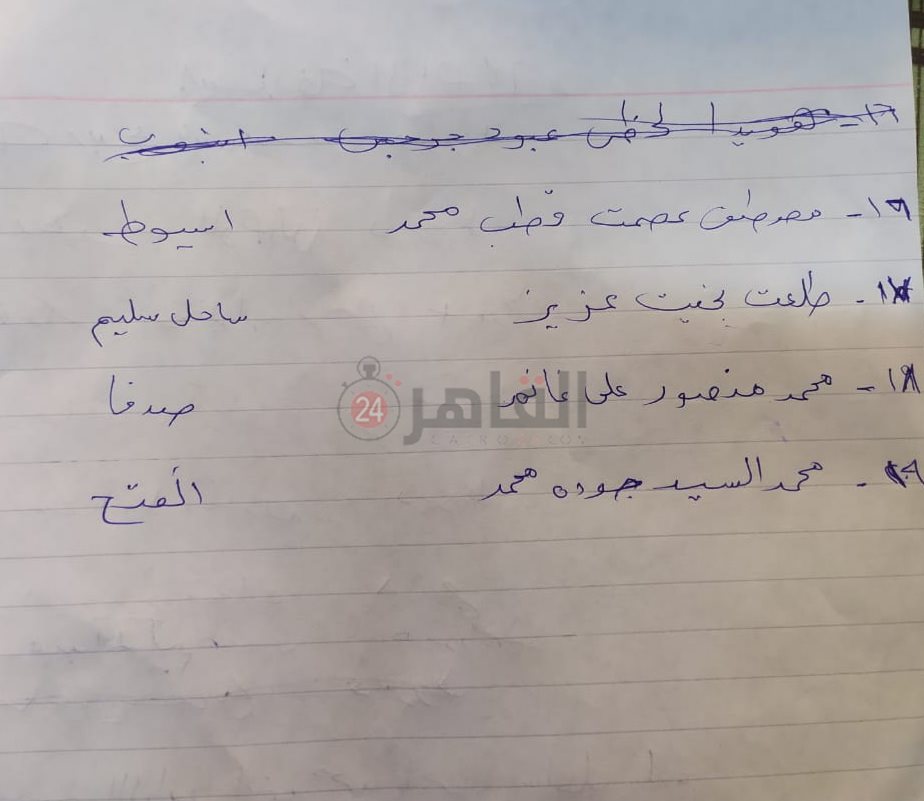 ١٦- هويدا لحظى عبود جرجس ابنوب
١٦- مصطفى عصمت قطب محمد اسيوط
١٧- طلعت بخيت عزيز ساحل سليم
١٨- محمد منصور على غانم صدفا
القاهرة 24
CAIRO24.COM
١٩- محمد السيد جوده محمد الفتح